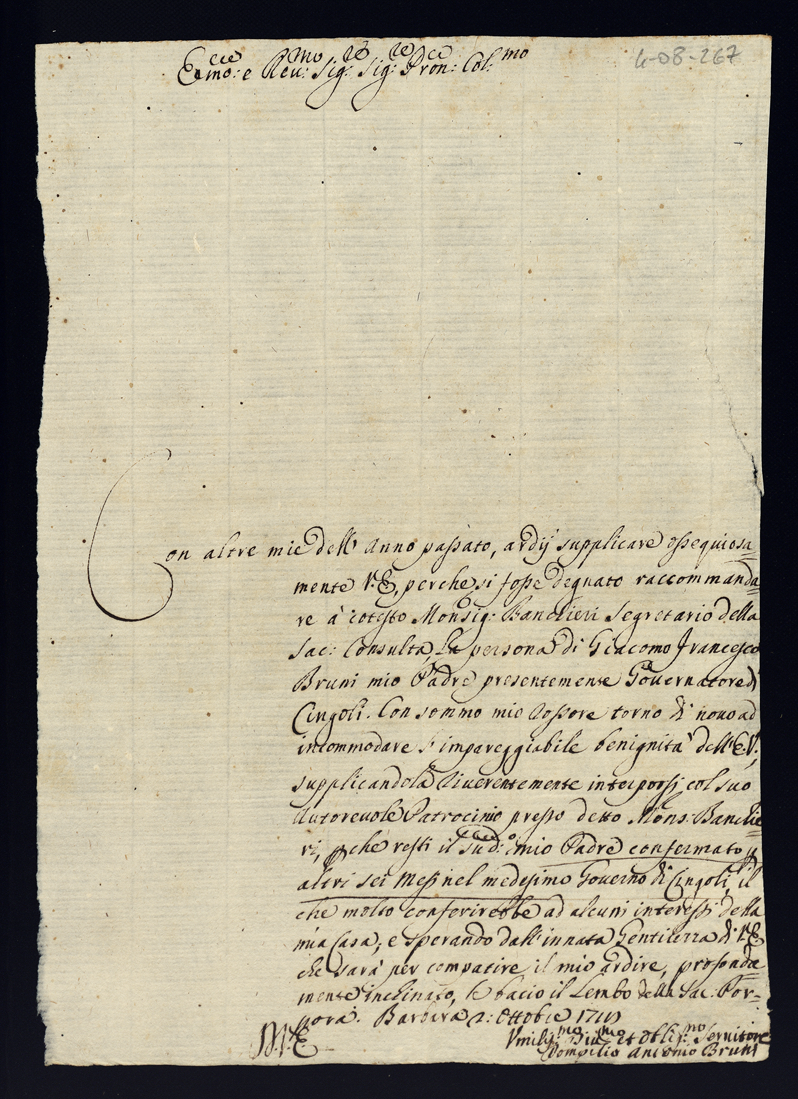 4-08-267
Em̃o: e Reu:mo Sig:re Sig:re Pron: Col:mo
Con altre mie dell' Anno passato, ardij supplicare ossequiosa=
mente V.E, perche si fosse degnato raccommanda=
re à cotesto Monsig: Banchieri Segretario della
Sac: Consulta, La persona di Giacomo Francesco
Bruni mio Padre presentemente Gouernatore di
Cingoli. Con sommo mio rossore torno di nouo ad
incommodare l'impareggiabile benignità dell'E.V.
supplicandola riuerentemente interporsi col suo
Autoreuole Patrocinio presso detto Mons: Banchie=
ri, pche resti il sud:o mio Padre confermato p
altri sei Mesi nel medesimo Gouerno di Cingoli, il
che molto conferirebbe ad alcuni interessi della
mia Casa; e sperando dall'innata Gentilezza di V.E
che sarà per compatire il mio ardire, profonda=
mente inchinato, le bacio il Lembo della Sac: Por=
pora. Barbara 2: Ottobre
V.E
Vmiliss:mo Diu:mo et Oblig:mo Seruitore
Pompilio Antonio Bruni